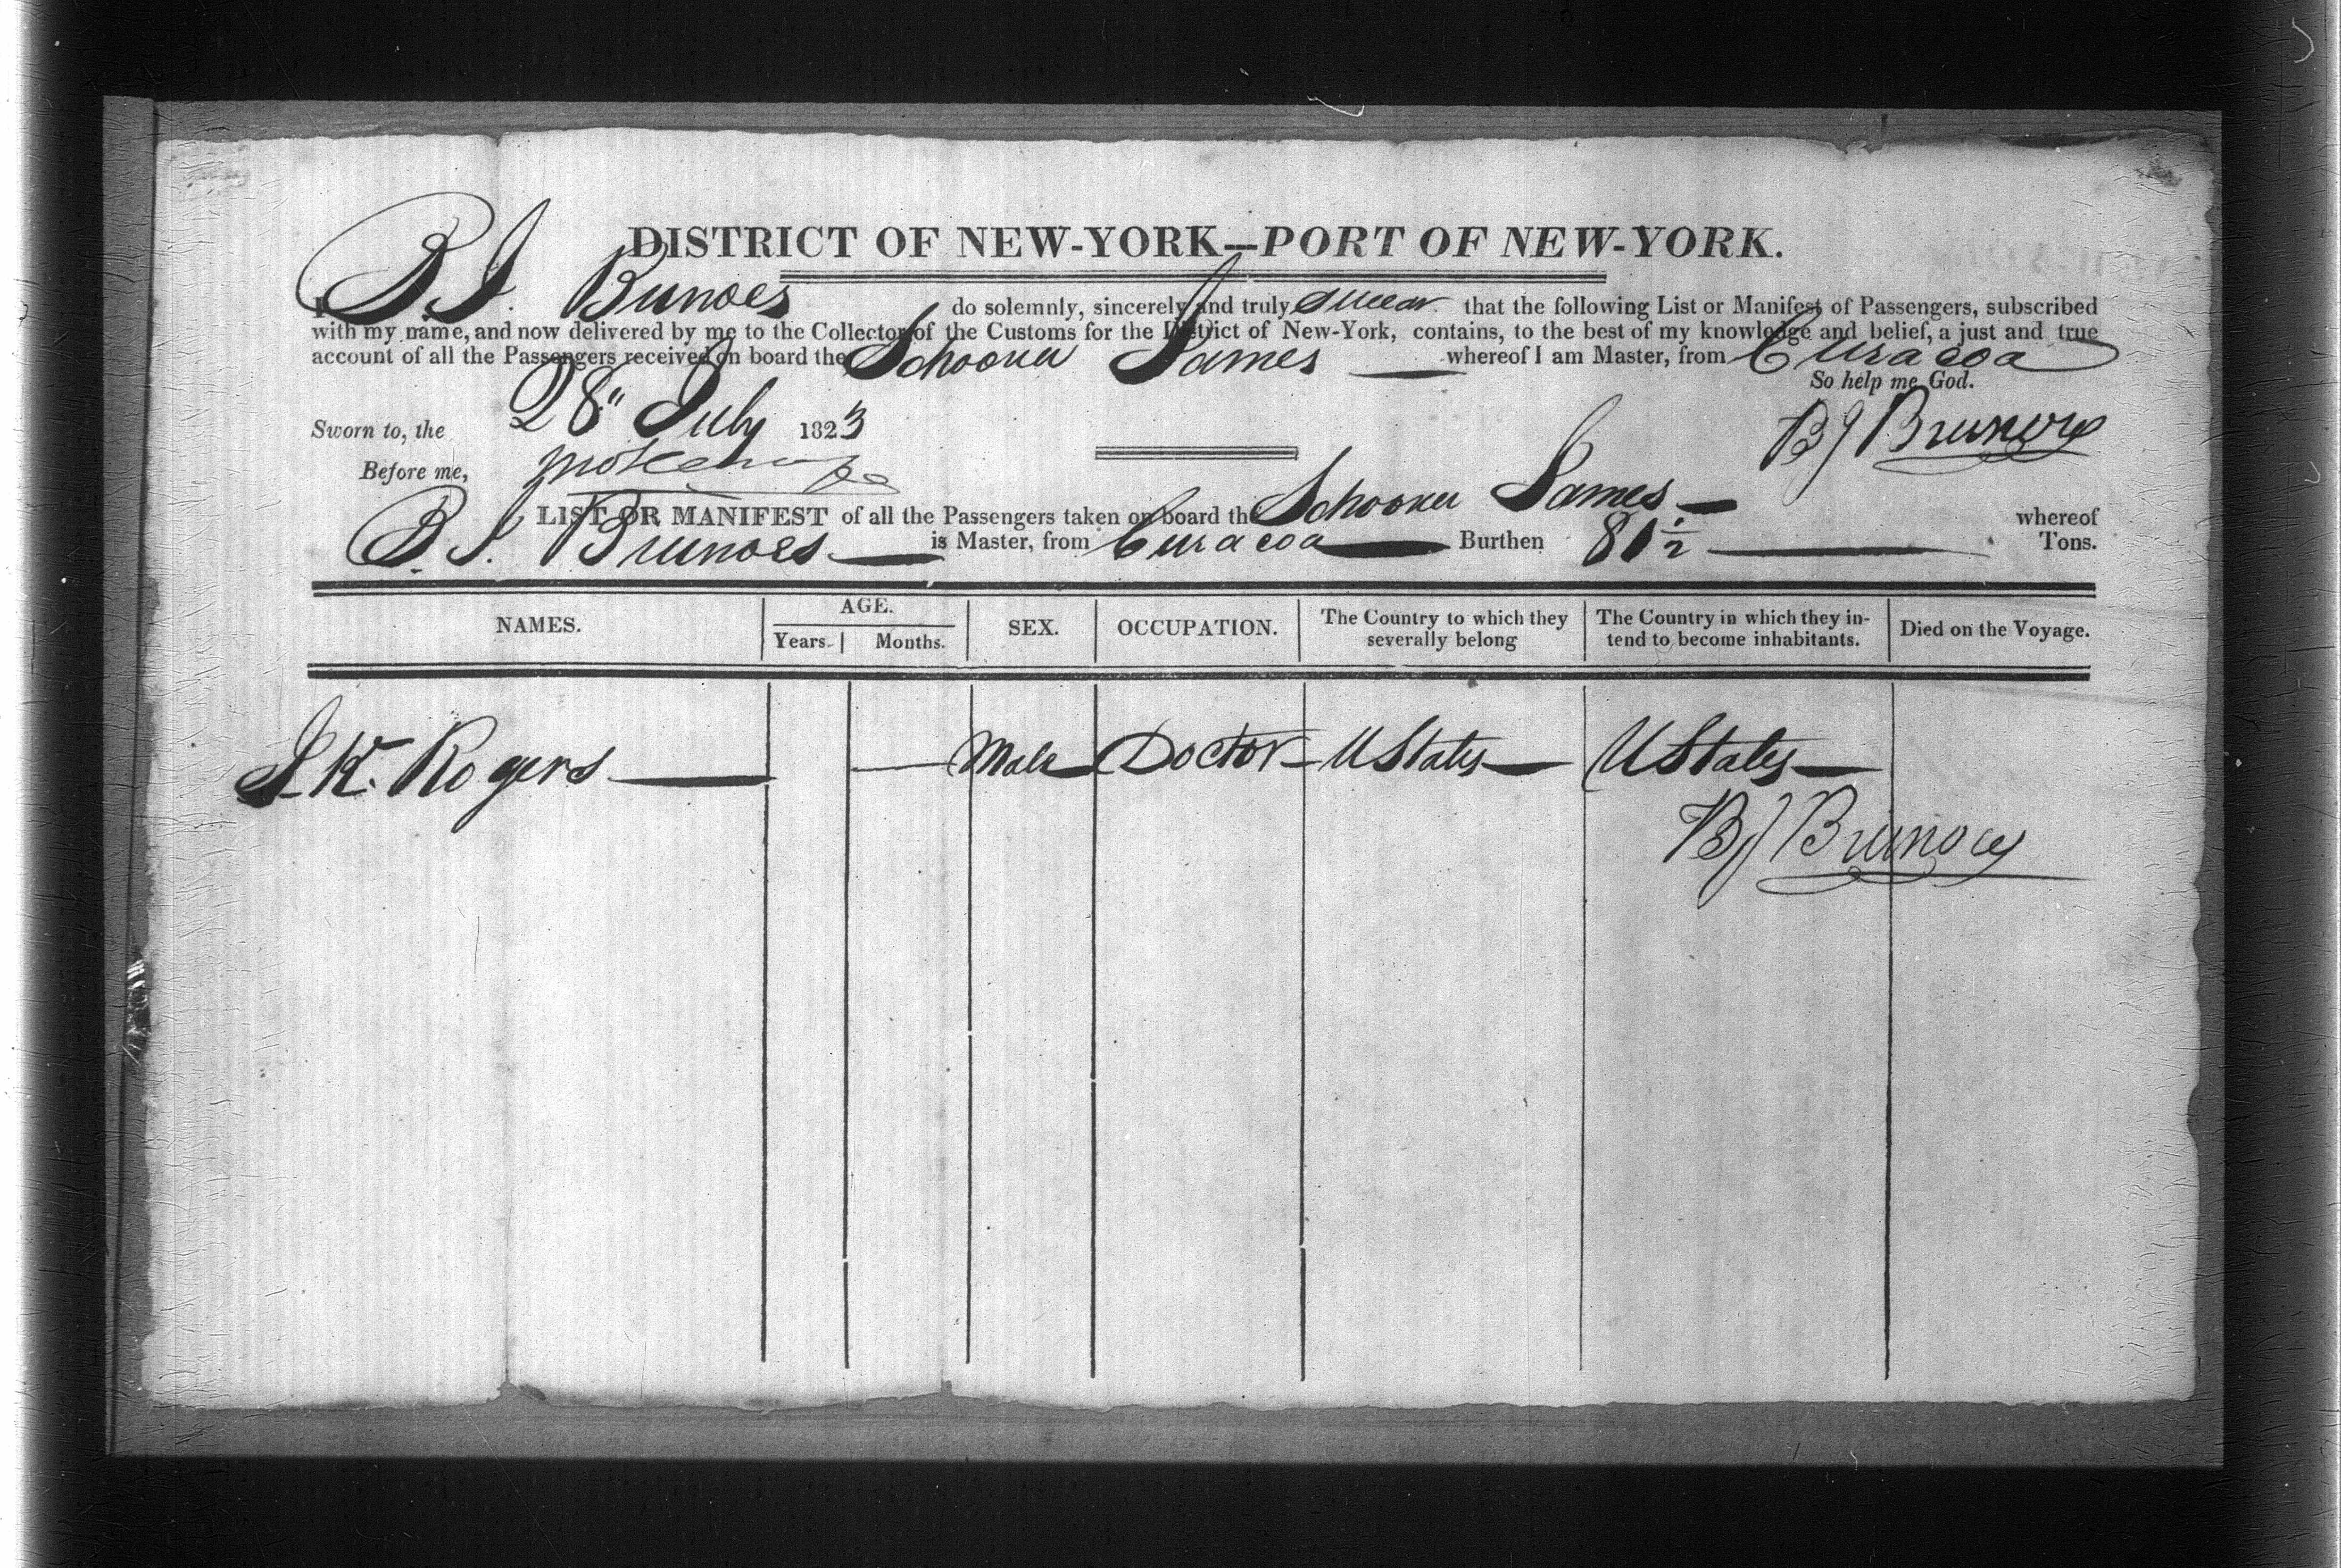 DISTRICT OF NEW-YORK—PORT OF NEW-YORK.
I B. J. Brunoes do solemnly, sincerely and truly swear that the following List or Manifest of Passengers, subscribed
with my name, and now delivered by me to the Collector of the Customs for the District of New-York, contains, to the best of my knowledge and belief, a just and true
account of all the Passengers received on board the Schooner James — whereof I am Master, from Curacoa
So help me God.
Sworn to, the 28" July 1823
B J Brunoes
Before me,
LIST OR MANIFEST of all the Passengers taken on board the Schooner James — whereof
B. J. Brunoes — is Master, from Curacoa — Burthen 81 1/2 — Tons.
NAMES. AGE. Years. Months. SEX. OCCUPATION. The Country to which they severally belong The Country in which they intend to become inhabitants. Died on the Voyage.
J. K. Rogers — — Male Doctor — U States — U States —
B J Brunoes